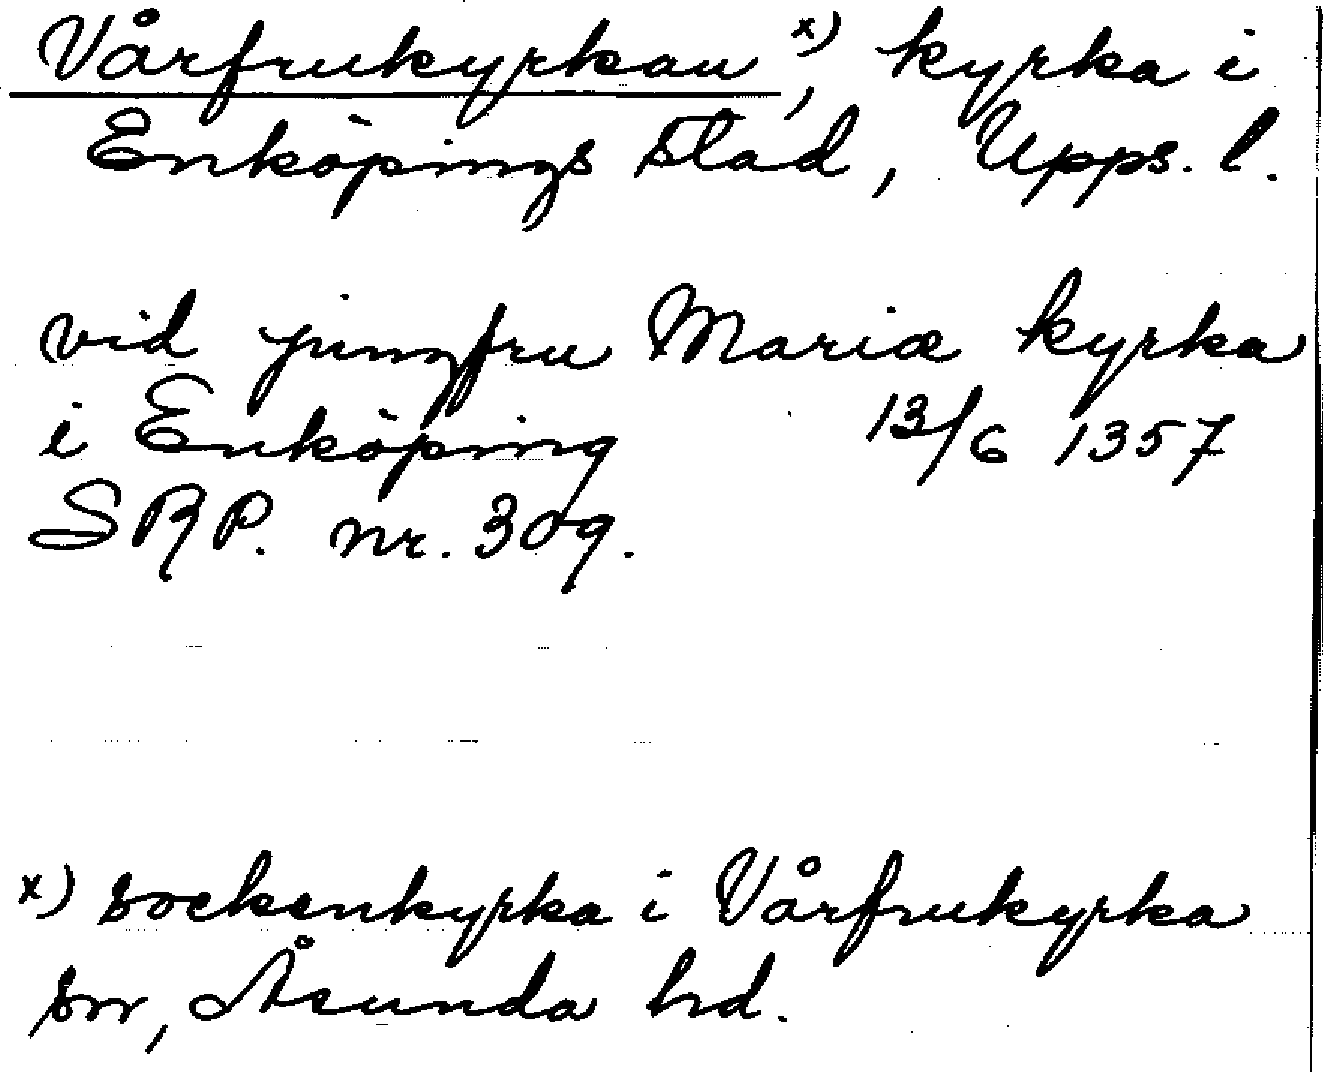 Vårfrukyrkan x), kyrka i
Enköpings stad, Upps. l.
vid jungfru Mariæ kyrka
i Enköping 13/6 1357
SRP. nr. 309.
x) sockenkyrka i Vårfrukyrka
sn, Åsunda hd.